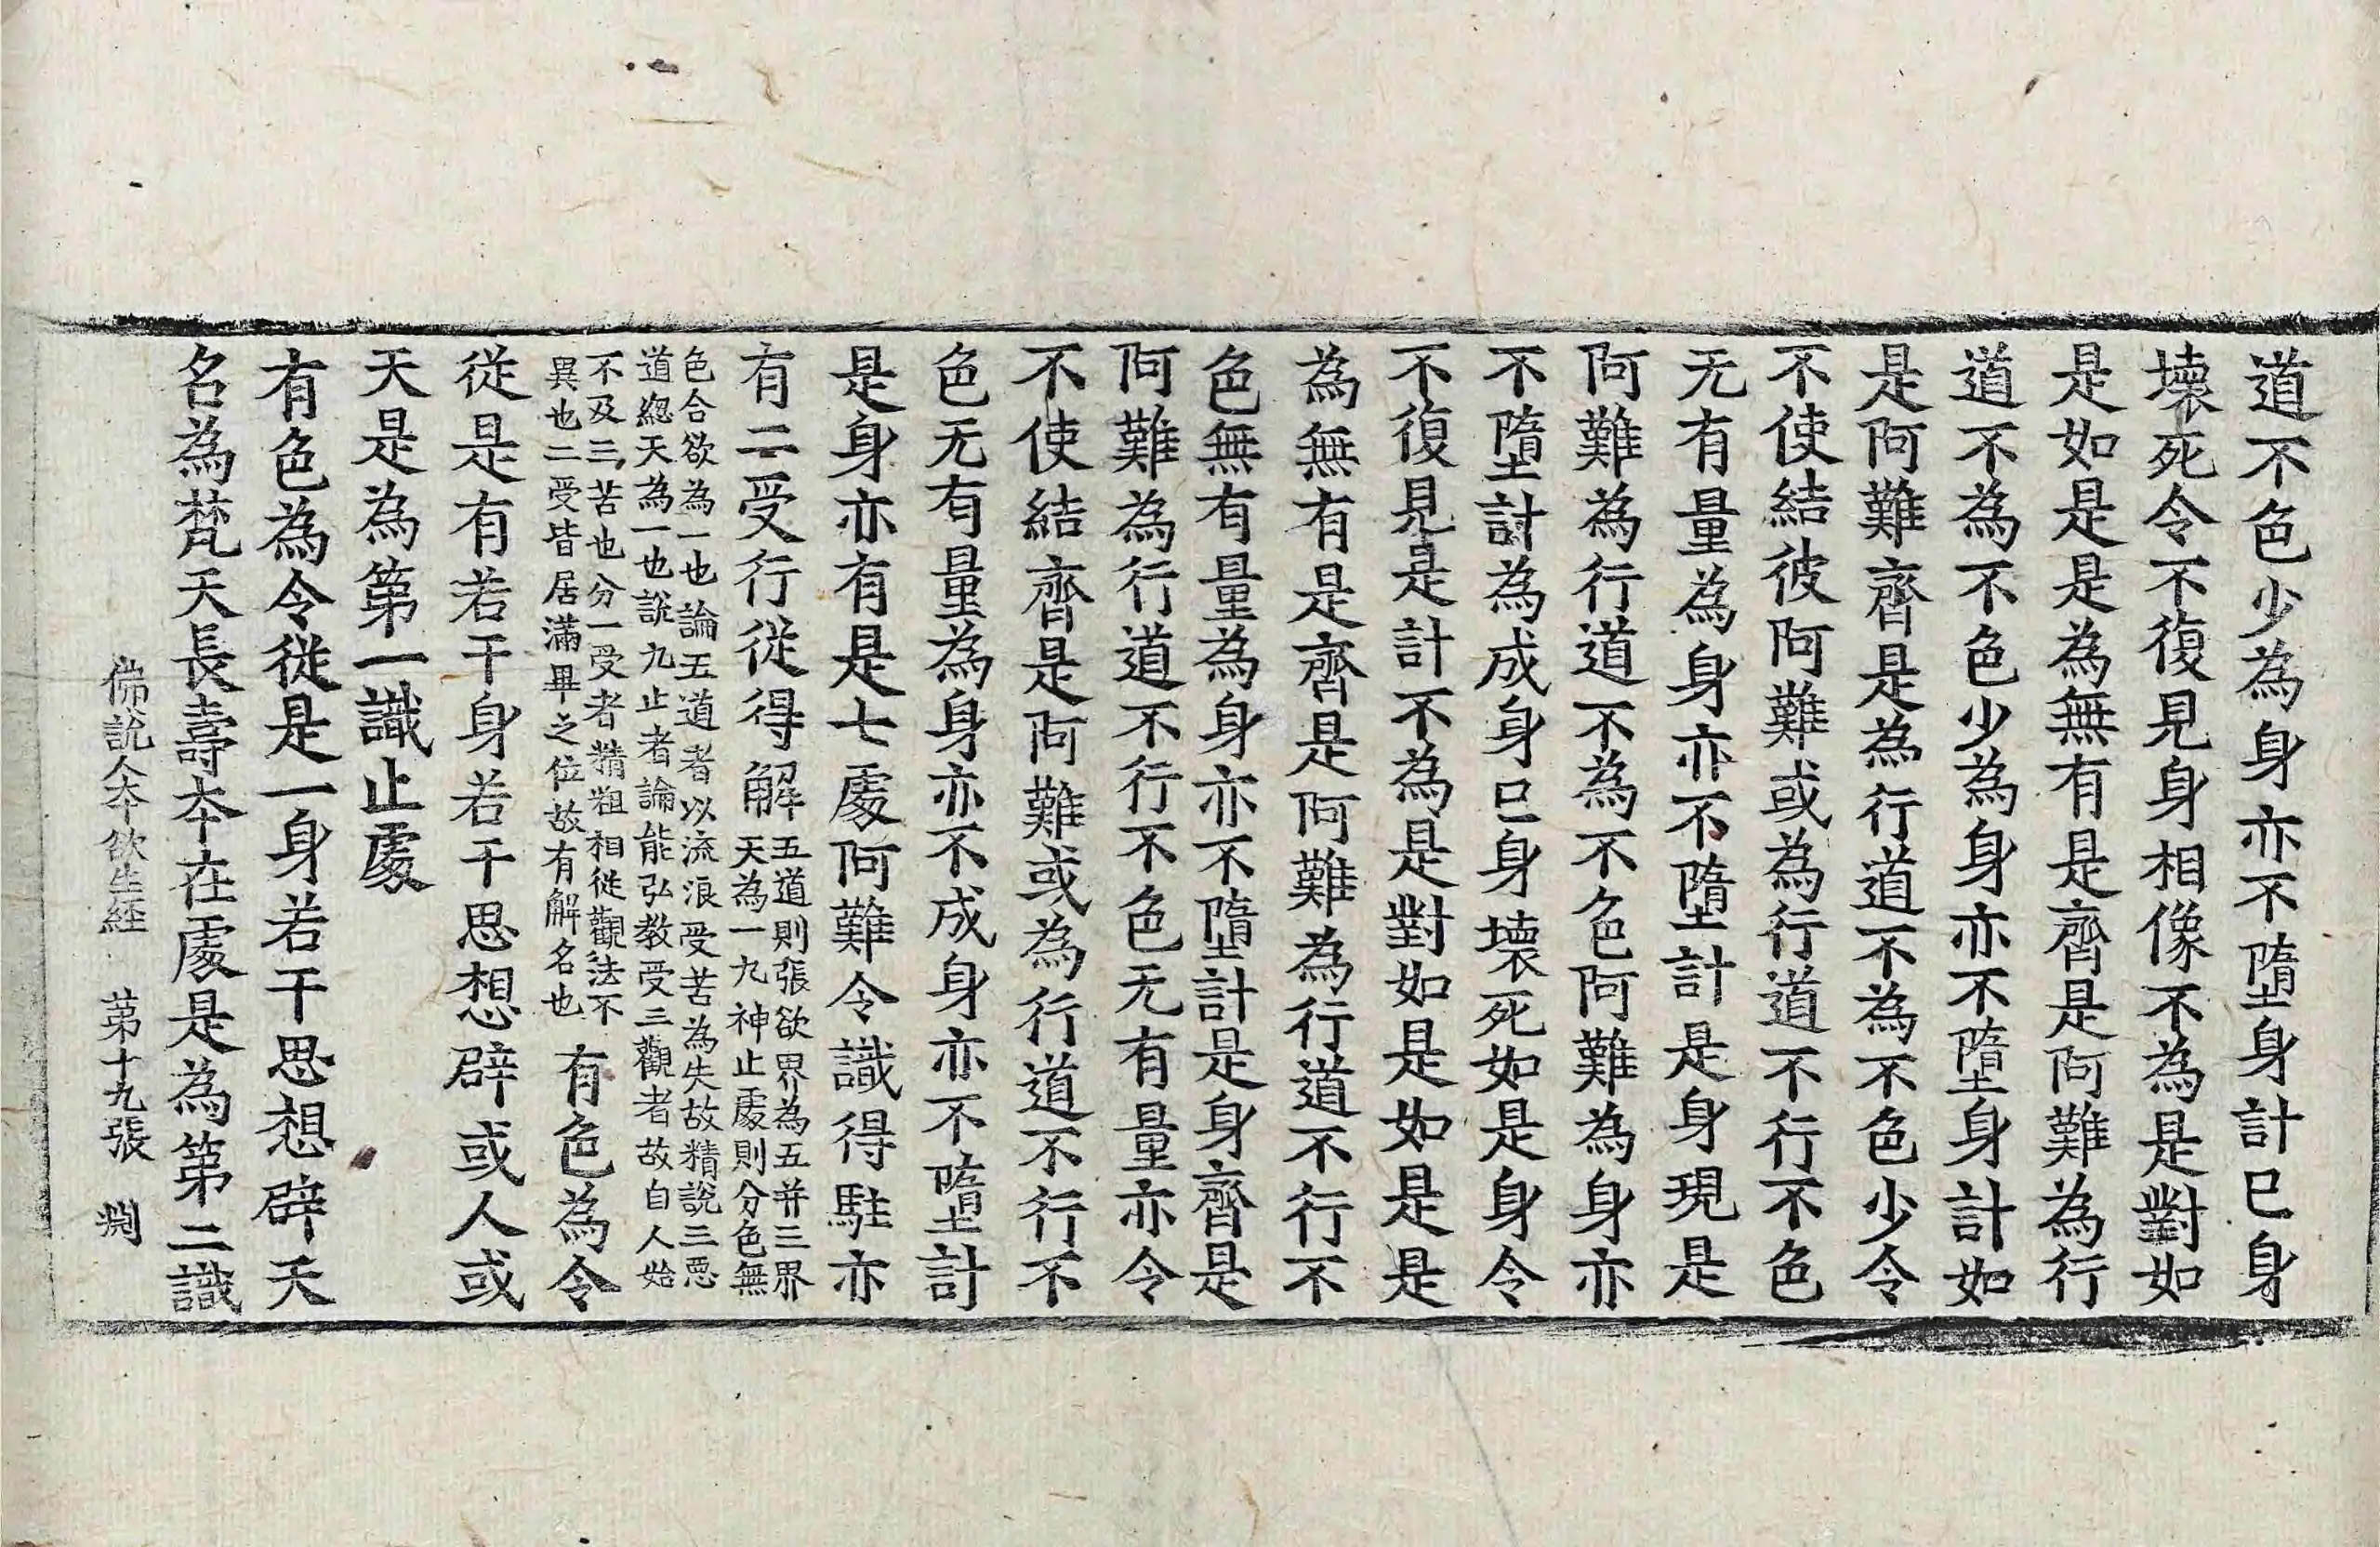 道不色少為身亦不墮身計已身
壞死令不復見身相像不為是對如
是如是是為無有是齊是阿難為行
道不為不色少為身亦不墮身計如
是阿難齊是為行道不為不色少令
不使結彼阿難或為行道不行不色
无有量為身亦不墮計是身現是
阿難為行道不為不色阿難為身亦
不墮計為成身已身壞死如是身令
不復見是計不為是對如是如是是
為無有是齊是阿難為行道不行不
色無有量為身亦不墮計是身齊是
阿難為行道不行不色无有量亦令
不使結齊是阿難或為行道不行不
色无有量為身亦不成身亦不墮計
是身亦有是七處阿難令識得駐亦
有二受行從得解五道則張欲界為五并三界
天為一九神止處則分色無
色合欲為一也論五道者以流浪受苦為失故精說三惡
道總天為一也說九止者論能弘教受三觀者故自人始
不及三苦也分一受者精粗相從觀法不
異也二受皆居滿畢之位故有解名也有色為令
從是有若干身若干思想辟或人或
天是為第一識止處
有色為令從是一身若干思想辟天
名為梵天長壽本在處是為第二識
佛說人本欲生經 第十九張 淵